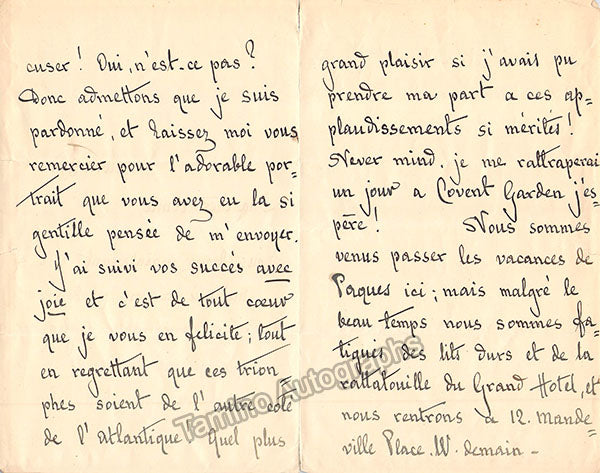 cuser! Oui, n'est-ce pas?
Donc admettons que je suis
pardonné, et laissez moi vous
remercier pour l'adorable por=
trait que vous avez eu la si
gentille pensée de m'envoyer.
J'ai suivi vos succès avec
joie et c'est de tout coeur
que je vous en felicite; tout
en regrettant que ces trion
phes soient de l'autre coté
de l'atlantique! quel plus
grand plaisir si j'avais pu
prendre ma part a ces ap=
plaudissements si mérités!
Never mind. je me rattraperai
un jour a Covent Garden j'es=
père! Nous sommes
venus passer les vacances de
Paques ici; mais malgré le
beau temps nous sommes fa=
tigués des lits durs et de la
rattatouille du Grand Hotel, et
nous rentrons a 12. Mande=
ville Place. W. demain -
Tamino Autographs